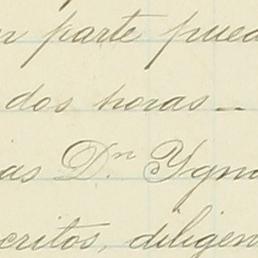 n parte pued
dos horas—
ias Dn Ygna
critos, diligen